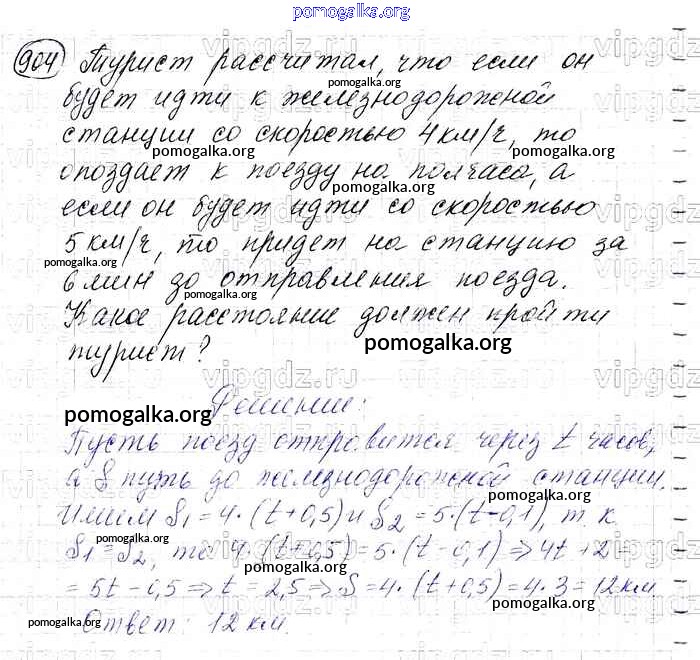 pomogalka.org
904 Турист рассчитал, что если он
pomogalka.org
будет идти к железнодорожной
станции со скоростью 4 км/ч, то
pomogalka.org pomogalka.org
опоздает к поезду на полчаса, а
pomogalka.org
если он будет идти со скоростью
5 км/ч, то придет на станцию за
pomogalka.org
6 мин до отправления поезда.
pomogalka.org
Какое расстояние должен пройти
турист?
pomogalka.org
Решение:
pomogalka.org
Пусть поезд отправится через t часов,
а S путь до железнодорожной станции.
pomogalka.org
Имеем S1 = 4·(t+0,5) и S2 = 5·(t-0,1), т. к
S1 = S2, то 4·(t+0,5) = 5·(t-0,1) ⇒ 4t + 2 =
= 5t - 0,5 ⇒ t = 2,5 ⇒ S = 4·(t+0,5) = 4·3 = 12 км
pomogalka.org
Ответ: 12 км.
pomogalka.org